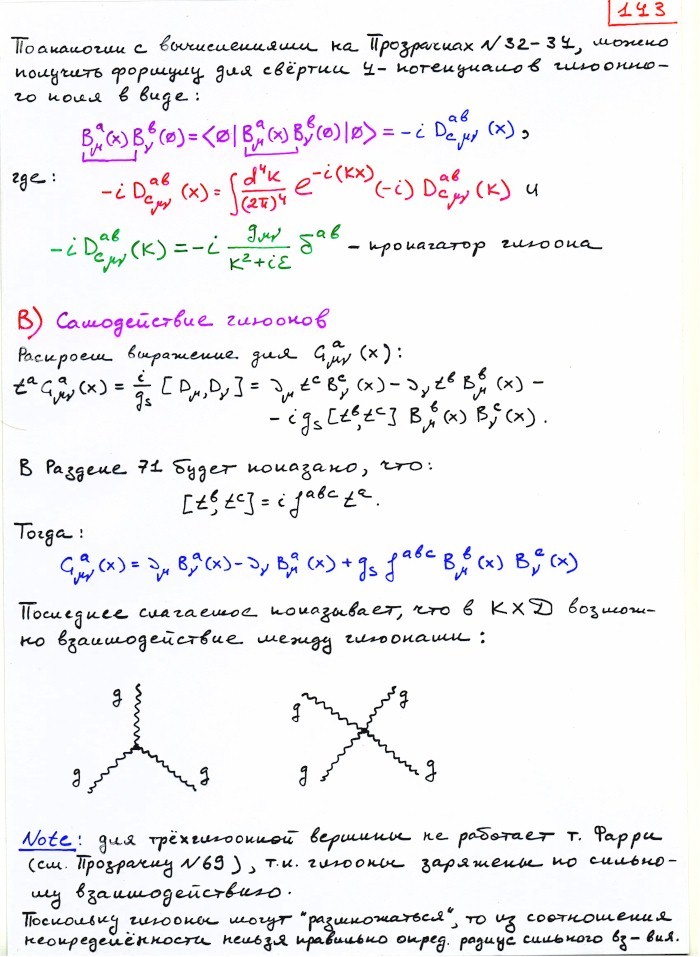 143
По аналогии с вычислениями на Прозрачках №32-34, можно
получить формулу для свёртки 4-потенциалов глюонно-
го поля в виде:
B^a_μ(x) B^b_ν(∅) = <∅| B^a_μ(x) B^b_ν(∅) |∅> = -i D^{ab}_{c μν}(x),
где: -i D^{ab}_{c μν}(x) = ∫ d⁴k/(2π)⁴ e^{-i(kx)} (-i) D^{ab}_{c μν}(k) и
-i D^{ab}_{c μν}(k) = -i g_{μν}/(k²+iε) δ^{ab} - пропагатор глюона
В) Самодействие глюонов
Раскроем выражение для G^a_{μν}(x):
t^a G^a_{μν}(x) = i/g_s [D_μ, D_ν] = ∂_μ t^c B^c_ν(x) - ∂_ν t^b B^b_μ(x) -
- i g_s [t^b, t^c] B^b_μ(x) B^c_ν(x).
В Разделе 71 будет показано, что:
[t^b, t^c] = i f^{abc} t^a.
Тогда:
G^a_{μν}(x) = ∂_μ B^a_ν(x) - ∂_ν B^a_μ(x) + g_s f^{abc} B^b_μ(x) B^c_ν(x)
Последнее слагаемое показывает, что в КХД возмож-
но взаимодействие между глюонами:
g
g
g
g
g
g
g
Note: для трёхглюонной вершины не работает т. Фарри
(см. Прозрачку №69), т.к. глюоны заряжены по сильно-
му взаимодействию.
Поскольку глюоны могут "размножаться", то из соотношения
неопределённости нельзя правильно опред. радиус сильного вз-вия.